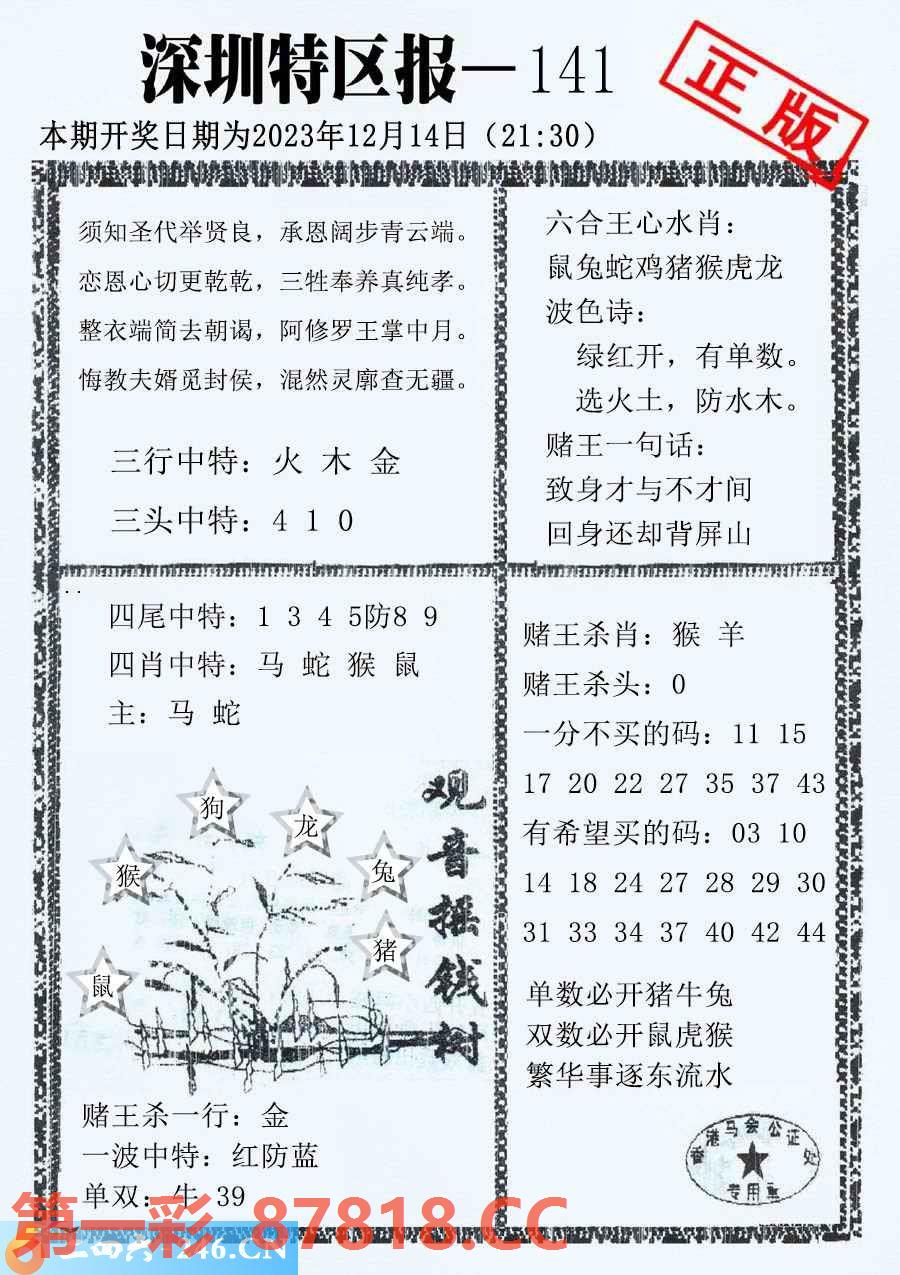 深圳特区报—141
正版
本期开奖日期为2023年12月14日（21:30）
须知圣代举贤良，承恩阔步青云端。
恋恩心切更乾乾，三牲奉养真纯孝。
整衣端简去朝谒，阿修罗王掌中月。
悔教夫婿觅封侯，混然灵廓查无疆。
三行中特：火 木 金
三头中特：4 1 0
六合王心水肖：
鼠兔蛇鸡猪猴虎龙
波色诗：
绿红开，有单数。
选火土，防水木。
赌王一句话：
致身才与不才间
回身还却背屏山
四尾中特：1 3 4 5防8 9
四肖中特：马 蛇 猴 鼠
主：马 蛇
狗
龙
猴
兔
猪
鼠
观音摇钱树
赌王杀一行：金
一波中特：红防蓝
单双：牛 39
赌王杀肖：猴 羊
赌王杀头：0
一分不买的码：11 15
17 20 22 27 35 37 43
有希望买的码：03 10
14 18 24 27 28 29 30
31 33 34 37 40 42 44
单数必开猪牛兔
双数必开鼠虎猴
繁华事逐东流水
香港马会公证处
专用章
第一彩 87818.CC
246.CN